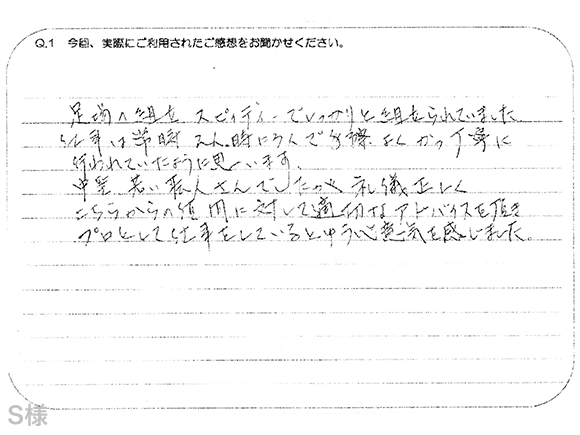 Q.1 今回、実際にご利用されたご感想をお聞かせください。
足場の組立 スピィディーでしっかりと組立られていました
仕事は常時 2人、時に3人で手際よくかつ丁寧に
行われていたように思います。
中堅 若い職人さんでしたが 礼儀正しく
こちらからの質問に対して適切なアドバイスを頂き
プロとして仕事をしているとゆう心意気を感じました。
S様